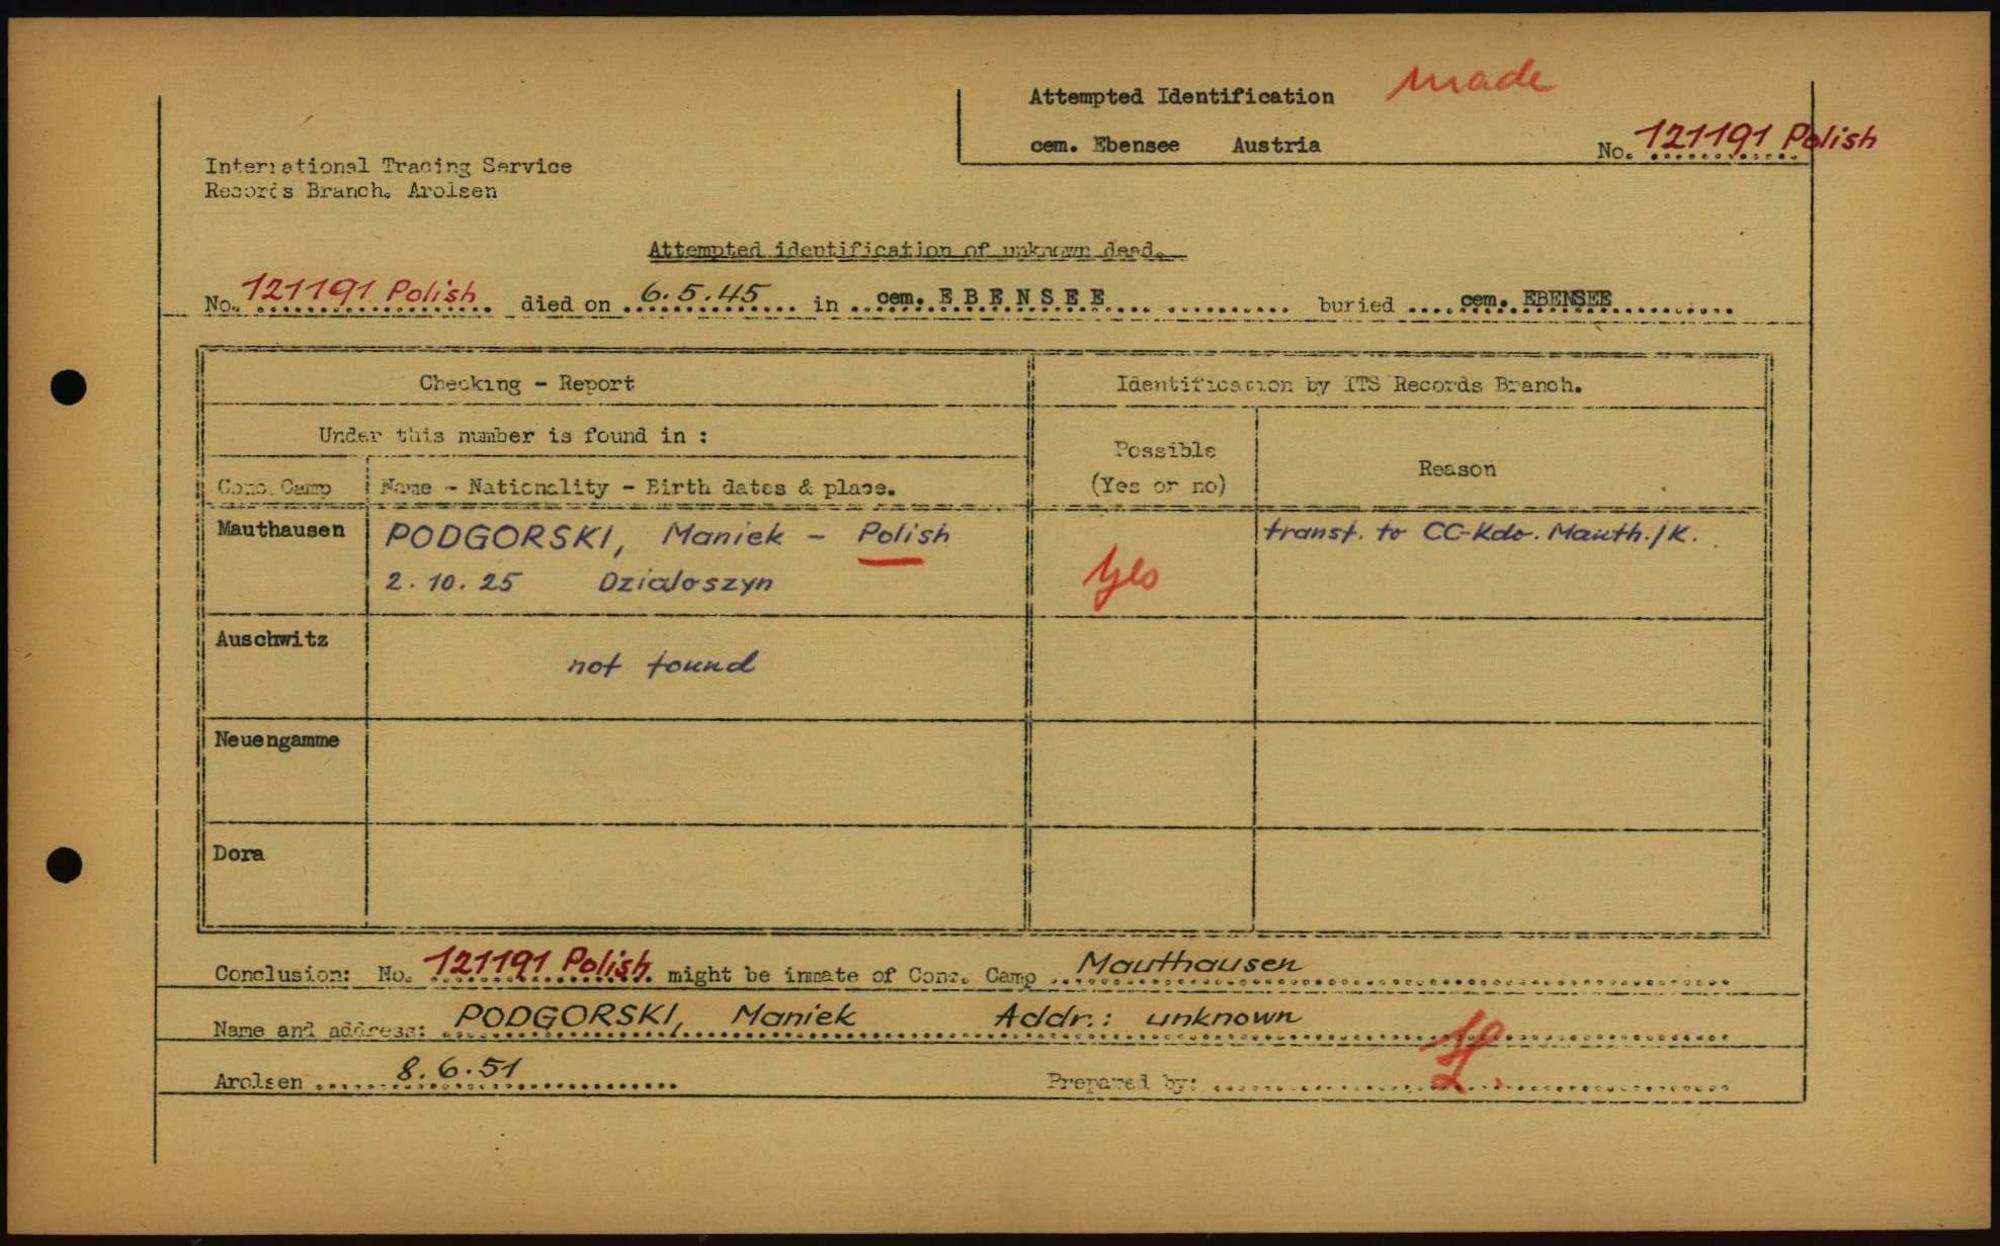 Attempted Identification made
cem. Ebensee Austria No. 121191 Polish
International Tracing Service
Records Branch. Arolsen
Attempted identification of unknown dead.
No. 121191 Polish died on 6.5.45 in cem. E B E N S E E buried cem. EBENSEE
Checking - Report Identification by ITS Records Branch.
Under this number is found in :
Possible
(Yes or no) Reason
Conc. Camp Name - Nationality - Birth dates & place.
Mauthausen PODGORSKI, Maniek - Polish transf. to CC-Kdo. Mauth./K.
2.10.25 Dzialoszyn yes
Auschwitz
not found
Neuengamme
Dora
Conclusion: No. 121191 Polish might be inmate of Conc. Camp Mauthausen
Name and address: PODGORSKI, Maniek Addr.: unknown
Arolsen 8.6.51 Prepared by: